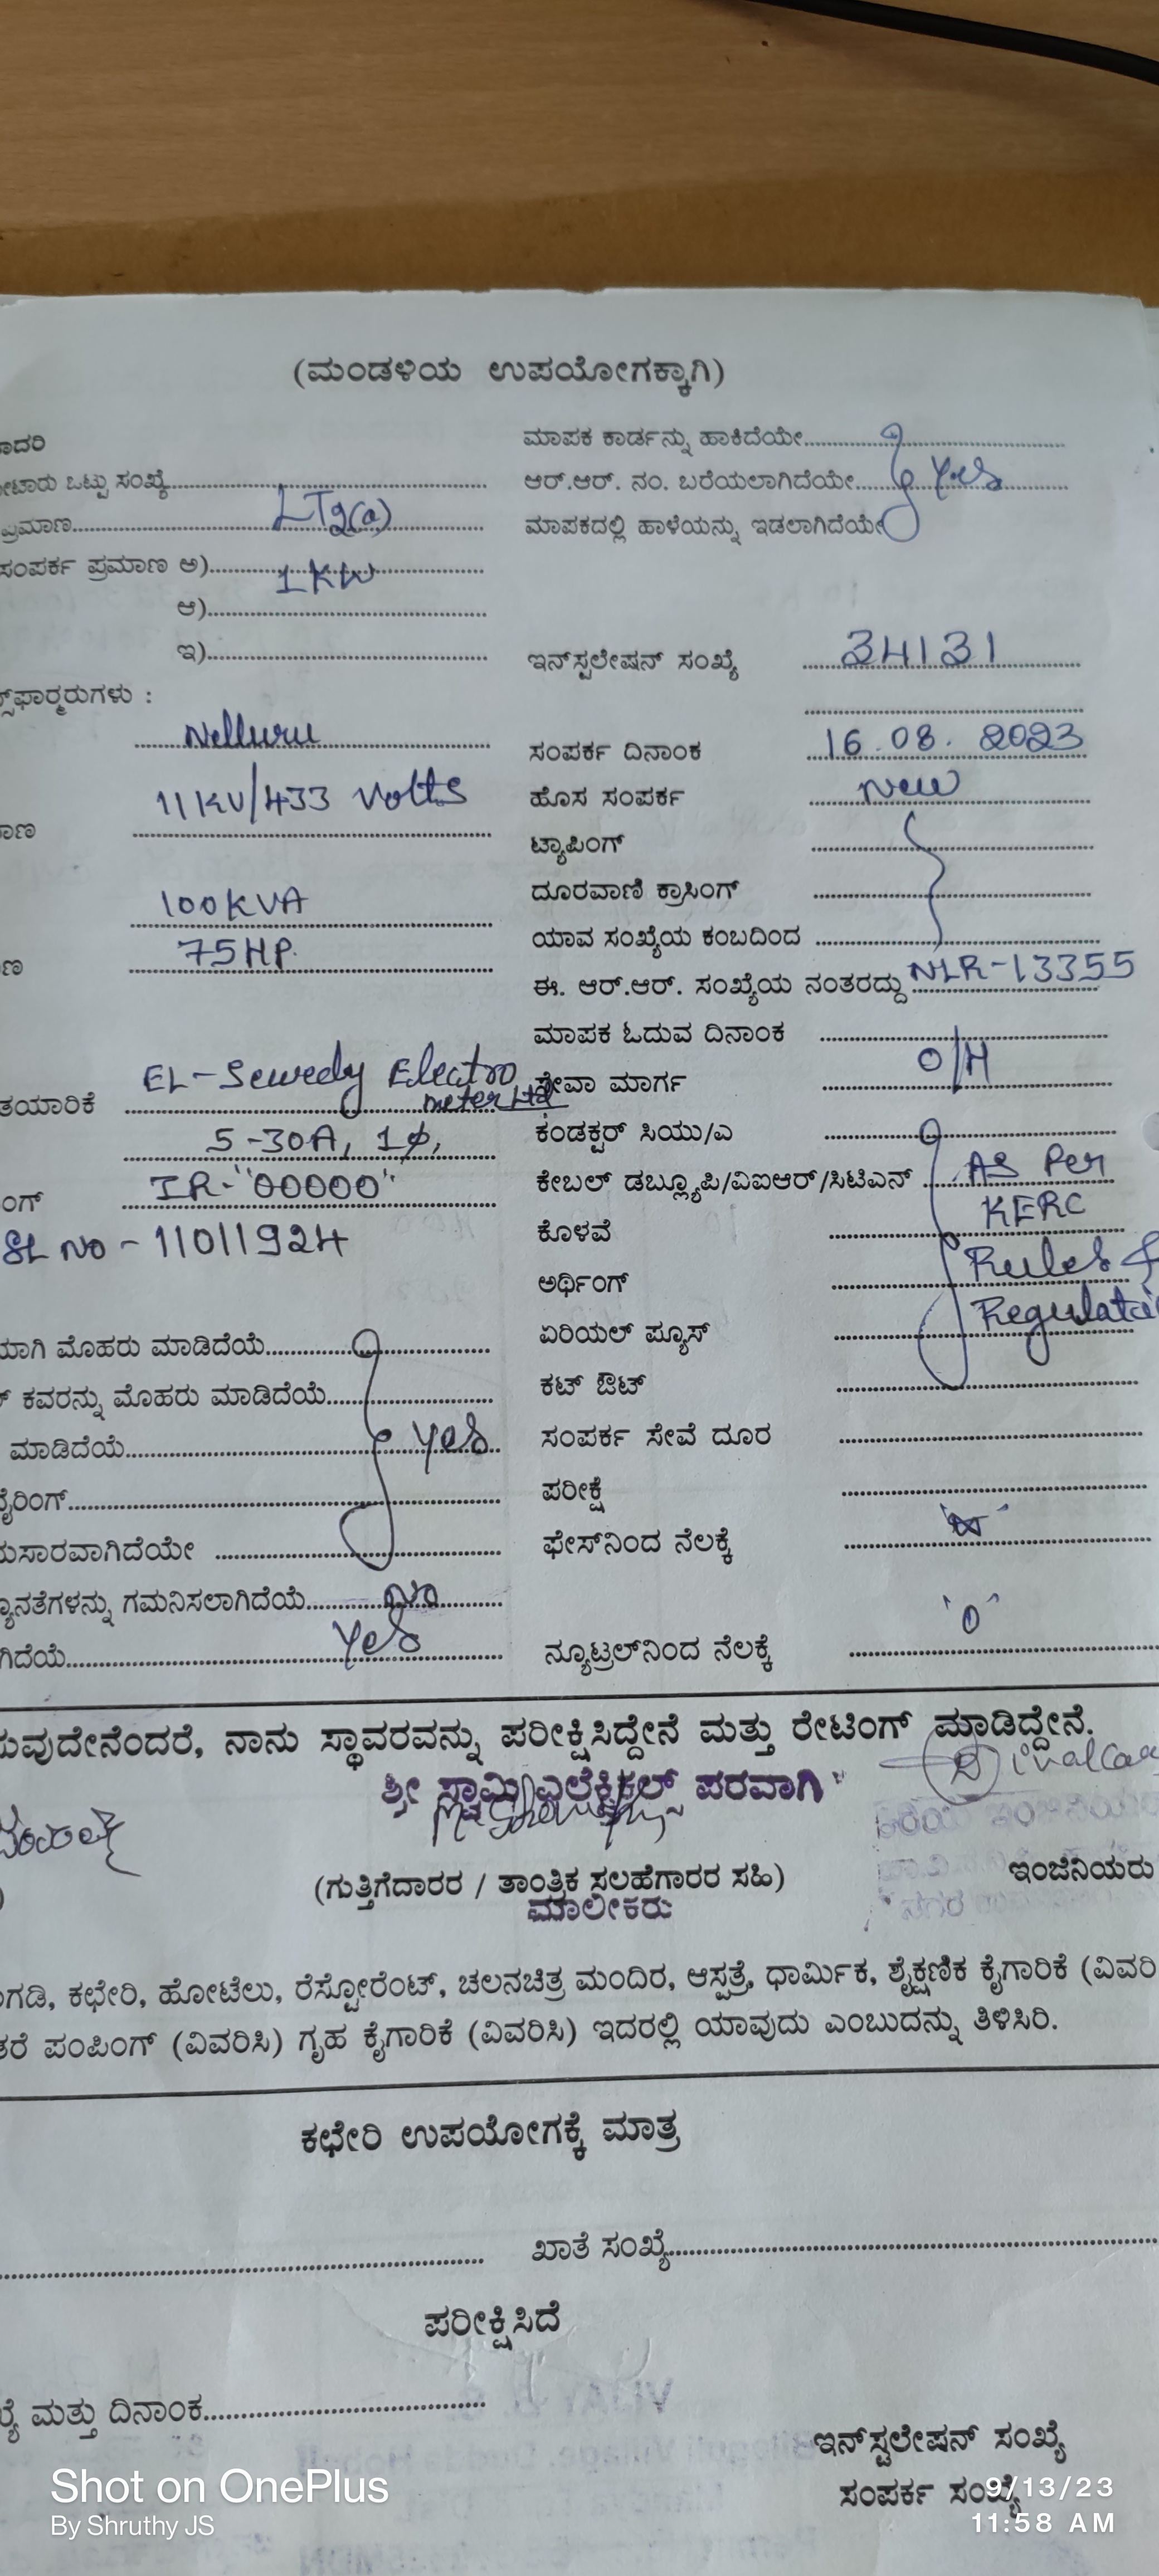 (ಮಂಡಳಿಯ ಉಪಯೋಗಕ್ಕಾಗಿ)
ಾದರಿ
ಮಾಪಕ ಕಾರ್ಡನ್ನು ಹಾಕಿದೆಯೇ
ೋಟಾರು ಒಟ್ಟು ಸಂಖ್ಯೆ
ಆರ್.ಆರ್. ನಂ. ಬರೆಯಲಾಗಿದೆಯೇ Yes
ಪ್ರಮಾಣ LT2(a)
ಮಾಪಕದಲ್ಲಿ ಹಾಳೆಯನ್ನು ಇಡಲಾಗಿದೆಯೇ
ಸಂಪರ್ಕ ಪ್ರಮಾಣ ಅ) 1KW
ಆ)
ಇ)
ಇನ್‌ಸ್ಟಲೇಷನ್ ಸಂಖ್ಯೆ 34131
ಸ್‌ಫಾರ್ಮರುಗಳು :
Nelluru
ಸಂಪರ್ಕ ದಿನಾಂಕ 16.08.2023
11KV/433 Volts
ಹೊಸ ಸಂಪರ್ಕ New
ಾಣ
ಟ್ಯಾಪಿಂಗ್
100KVA
ದೂರವಾಣಿ ಕ್ರಾಸಿಂಗ್
ಣ 75HP.
ಯಾವ ಸಂಖ್ಯೆಯ ಕಂಬದಿಂದ
ಈ. ಆರ್.ಆರ್. ಸಂಖ್ಯೆಯ ನಂತರದ್ದು NLR-13355
ಮಾಪಕ ಓದುವ ದಿನಾಂಕ
ತಯಾರಿಕೆ EL-Sewedy Electro meter Ltd
ಸೇವಾ ಮಾರ್ಗ O/H
5-30A, 1φ,
ಕಂಡಕ್ಟರ್ ಸಿಯು/ಎ
ಂಗ್ IR-"00000"
ಕೇಬಲ್ ಡಬ್ಲ್ಯೂಪಿ/ವಿಐಆರ್/ಸಿಟಿಎನ್ AS Per
SL NO - 11011924
ಕೊಳವೆ KERC
ಅರ್ಥಿಂಗ್ Rules &
ಯಾಗಿ ಮೊಹರು ಮಾಡಿದೆಯೆ
ಏರಿಯಲ್ ಪ್ಯೂಸ್ Regulati
್ ಕವರನ್ನು ಮೊಹರು ಮಾಡಿದೆಯೆ
ಕಟ್ ಔಟ್
ಮಾಡಿದೆಯೆ Yes
ಸಂಪರ್ಕ ಸೇವೆ ದೂರ
ೈರಿಂಗ್
ಪರೀಕ್ಷೆ
ುಸಾರವಾಗಿದೆಯೇ
ಫೇಸ್‌ನಿಂದ ನೆಲಕ್ಕೆ
್ಯೂನತೆಗಳನ್ನು ಗಮನಿಸಲಾಗಿದೆಯೆ No
ಗಿದೆಯೆ Yes
ನ್ಯೂಟ್ರಲ್‌ನಿಂದ ನೆಲಕ್ಕೆ '0'
ುವುದೇನೆಂದರೆ, ನಾನು ಸ್ಥಾವರವನ್ನು ಪರೀಕ್ಷಿಸಿದ್ದೇನೆ ಮತ್ತು ರೇಟಿಂಗ್ ಮಾಡಿದ್ದೇನೆ.
ಶ್ರೀ ಸ್ವಾಮಿ ಎಲೆಕ್ಟ್ರಿಕಲ್ಸ್ ಪರವಾಗಿ
(ಗುತ್ತಿಗೆದಾರರ / ತಾಂತ್ರಿಕ ಸಲಹೆಗಾರರ ಸಹಿ)
ಇಂಜಿನಿಯರು
ಮಾಲೀಕರು
ಂಗಡಿ, ಕಛೇರಿ, ಹೋಟೆಲು, ರೆಸ್ಟೋರೆಂಟ್, ಚಲನಚಿತ್ರ ಮಂದಿರ, ಆಸ್ಪತ್ರೆ, ಧಾರ್ಮಿಕ, ಶೈಕ್ಷಣಿಕ ಕೈಗಾರಿಕೆ (ವಿವರಿ
ತರೆ ಪಂಪಿಂಗ್ (ವಿವರಿಸಿ) ಗೃಹ ಕೈಗಾರಿಕೆ (ವಿವರಿಸಿ) ಇದರಲ್ಲಿ ಯಾವುದು ಎಂಬುದನ್ನು ತಿಳಿಸಿರಿ.
ಕಛೇರಿ ಉಪಯೋಗಕ್ಕೆ ಮಾತ್ರ
ಖಾತೆ ಸಂಖ್ಯೆ
ಪರೀಕ್ಷಿಸಿದೆ
ಖ್ಯೆ ಮತ್ತು ದಿನಾಂಕ
ಇನ್‌ಸ್ಟಲೇಷನ್ ಸಂಖ್ಯೆ
ಸಂಪರ್ಕ ಸಂಖ್ಯೆ
Shot on OnePlus
By Shruthy JS
9/13/23
11:58 AM